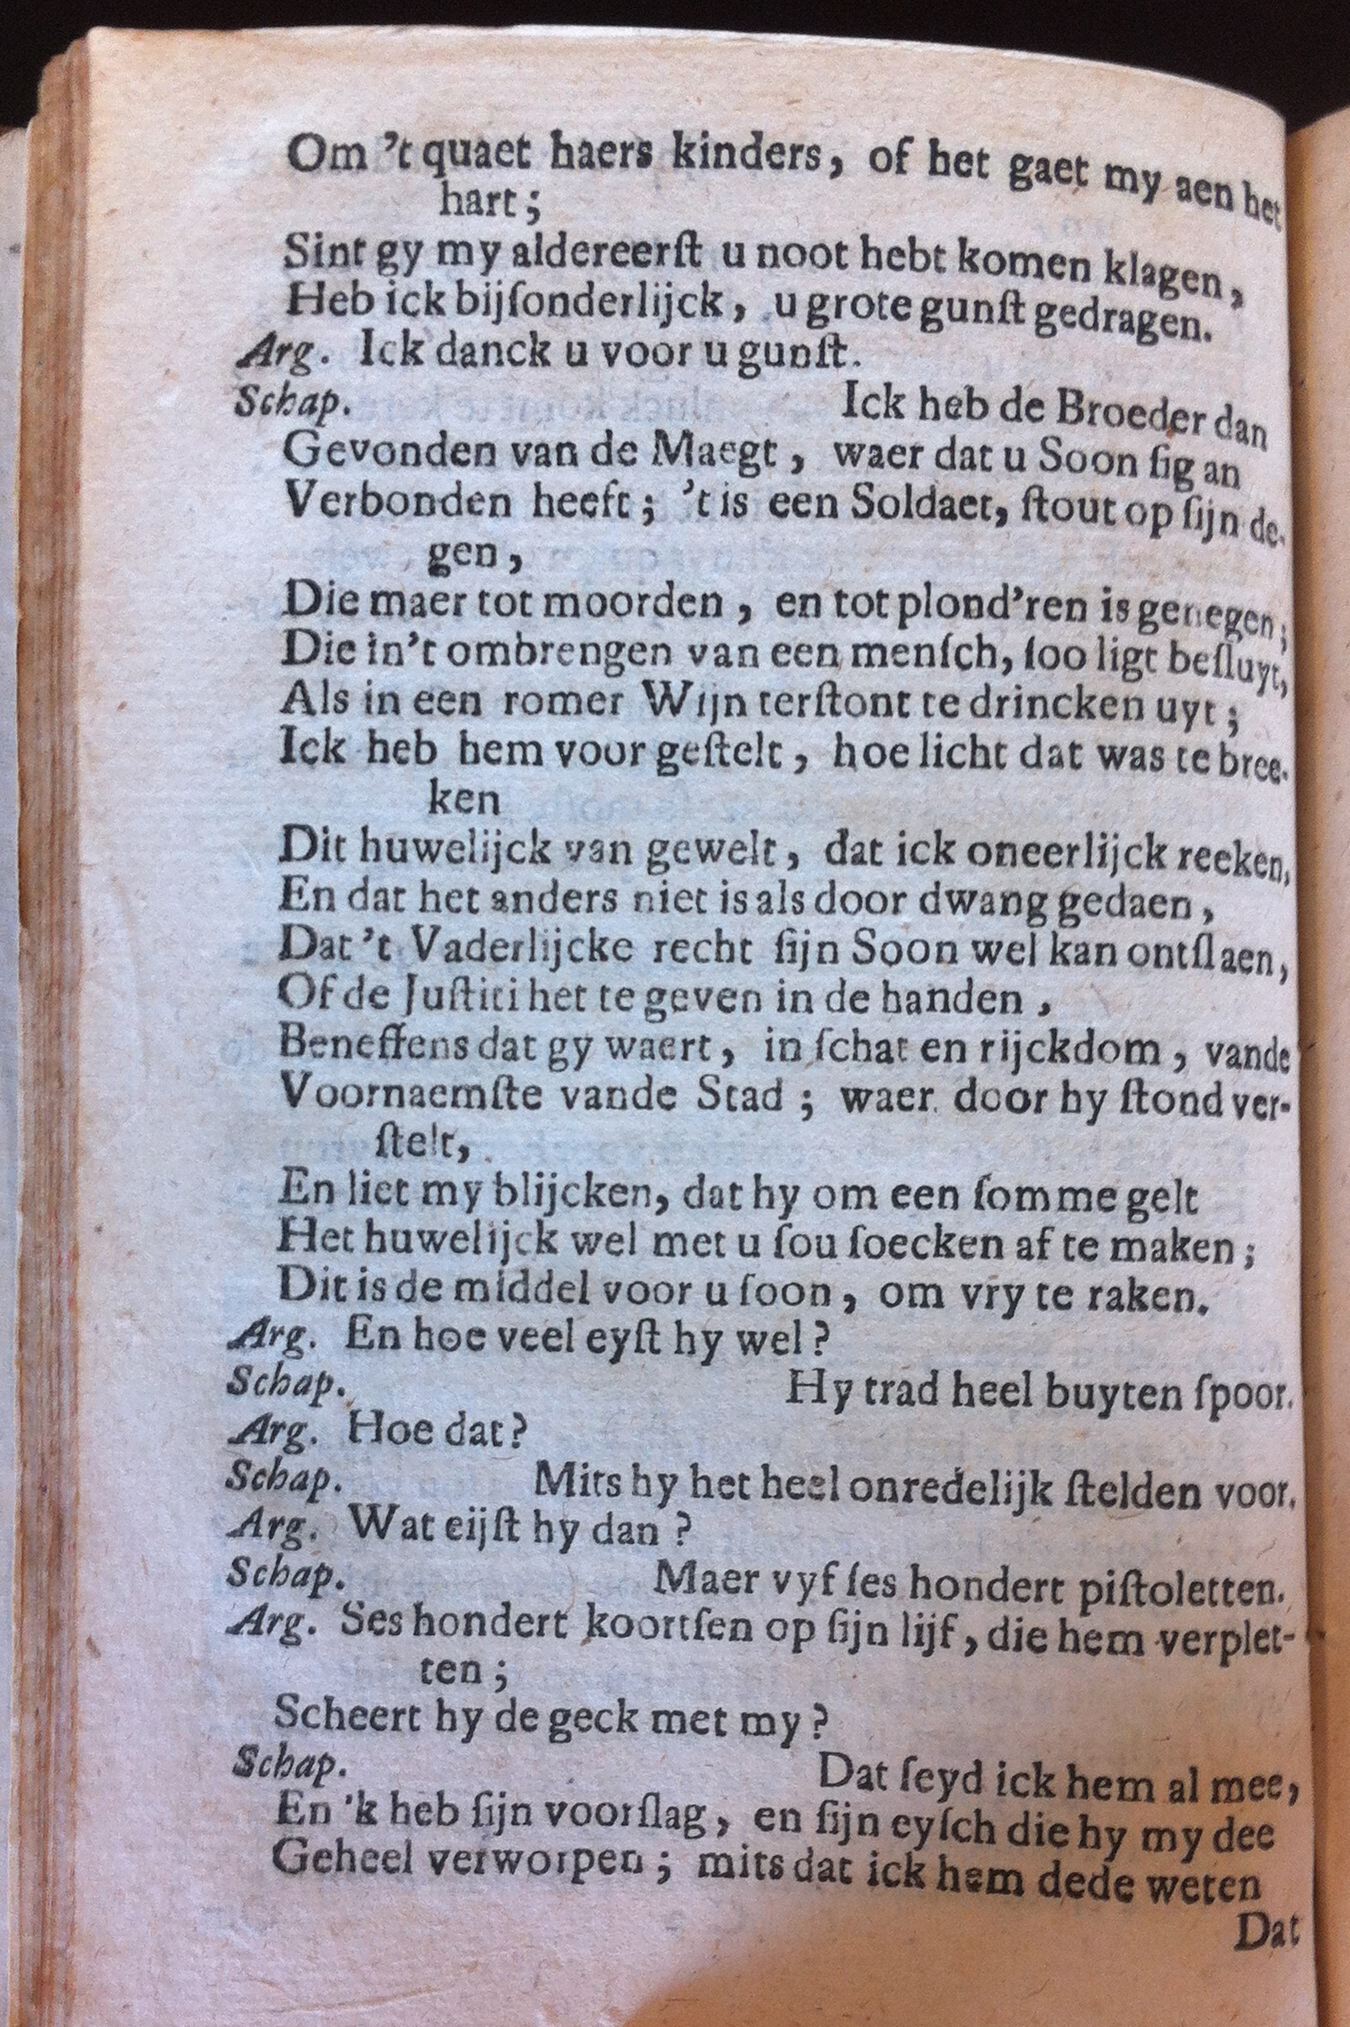 Om 't quaet haers kinders, of het gaet my aen het
hart;
Sint gy my aldereerſt u noot hebt komen klagen,
Heb ick bijſonderlijck, u grote gunſt gedragen.
Arg. Ick danck u voor u gunſt.
Schap. Ick heb de Broeder dan
Gevonden van de Maegt, waer dat u Soon ſig an
Verbonden heeft; 't is een Soldaet, ſtout op ſijn de-
gen,
Die maer tot moorden, en tot plond'ren is genegen;
Die in't ombrengen van een menſch, ſoo ligt beſluyt,
Als in een romer Wijn terſtont te drincken uyt;
Ick heb hem voor geſtelt, hoe licht dat was te bree-
ken
Dit huwelijck van gewelt, dat ick oneerlijck reeken,
En dat het anders niet is als door dwang gedaen,
Dat 't Vaderlijcke recht ſijn Soon wel kan ontſlaen,
Of de Juſtiti het te geven in de handen,
Beneffens dat gy waert, in ſchat en rijckdom, vande
Voornaemſte vande Stad; waer door hy ſtond ver-
ſtelt,
En liet my blijcken, dat hy om een ſomme gelt
Het huwelijck wel met u ſou ſoecken af te maken;
Dit is de middel voor u ſoon, om vry te raken.
Arg. En hoe veel eyſt hy wel?
Schap. Hy trad heel buyten ſpoor.
Arg. Hoe dat?
Schap. Mits hy het heel onredelijk ſtelden voor.
Arg. Wat eijſt hy dan?
Schap. Maer vyf ſes hondert piſtoletten.
Arg. Ses hondert koortſen op ſijn lijf, die hem verplet-
ten;
Scheert hy de geck met my?
Schap. Dat ſeyd ick hem al mee,
En 'k heb ſijn voorſlag, en ſijn eyſch die hy my dee
Geheel verworpen; mits dat ick hem dede weten
Dat